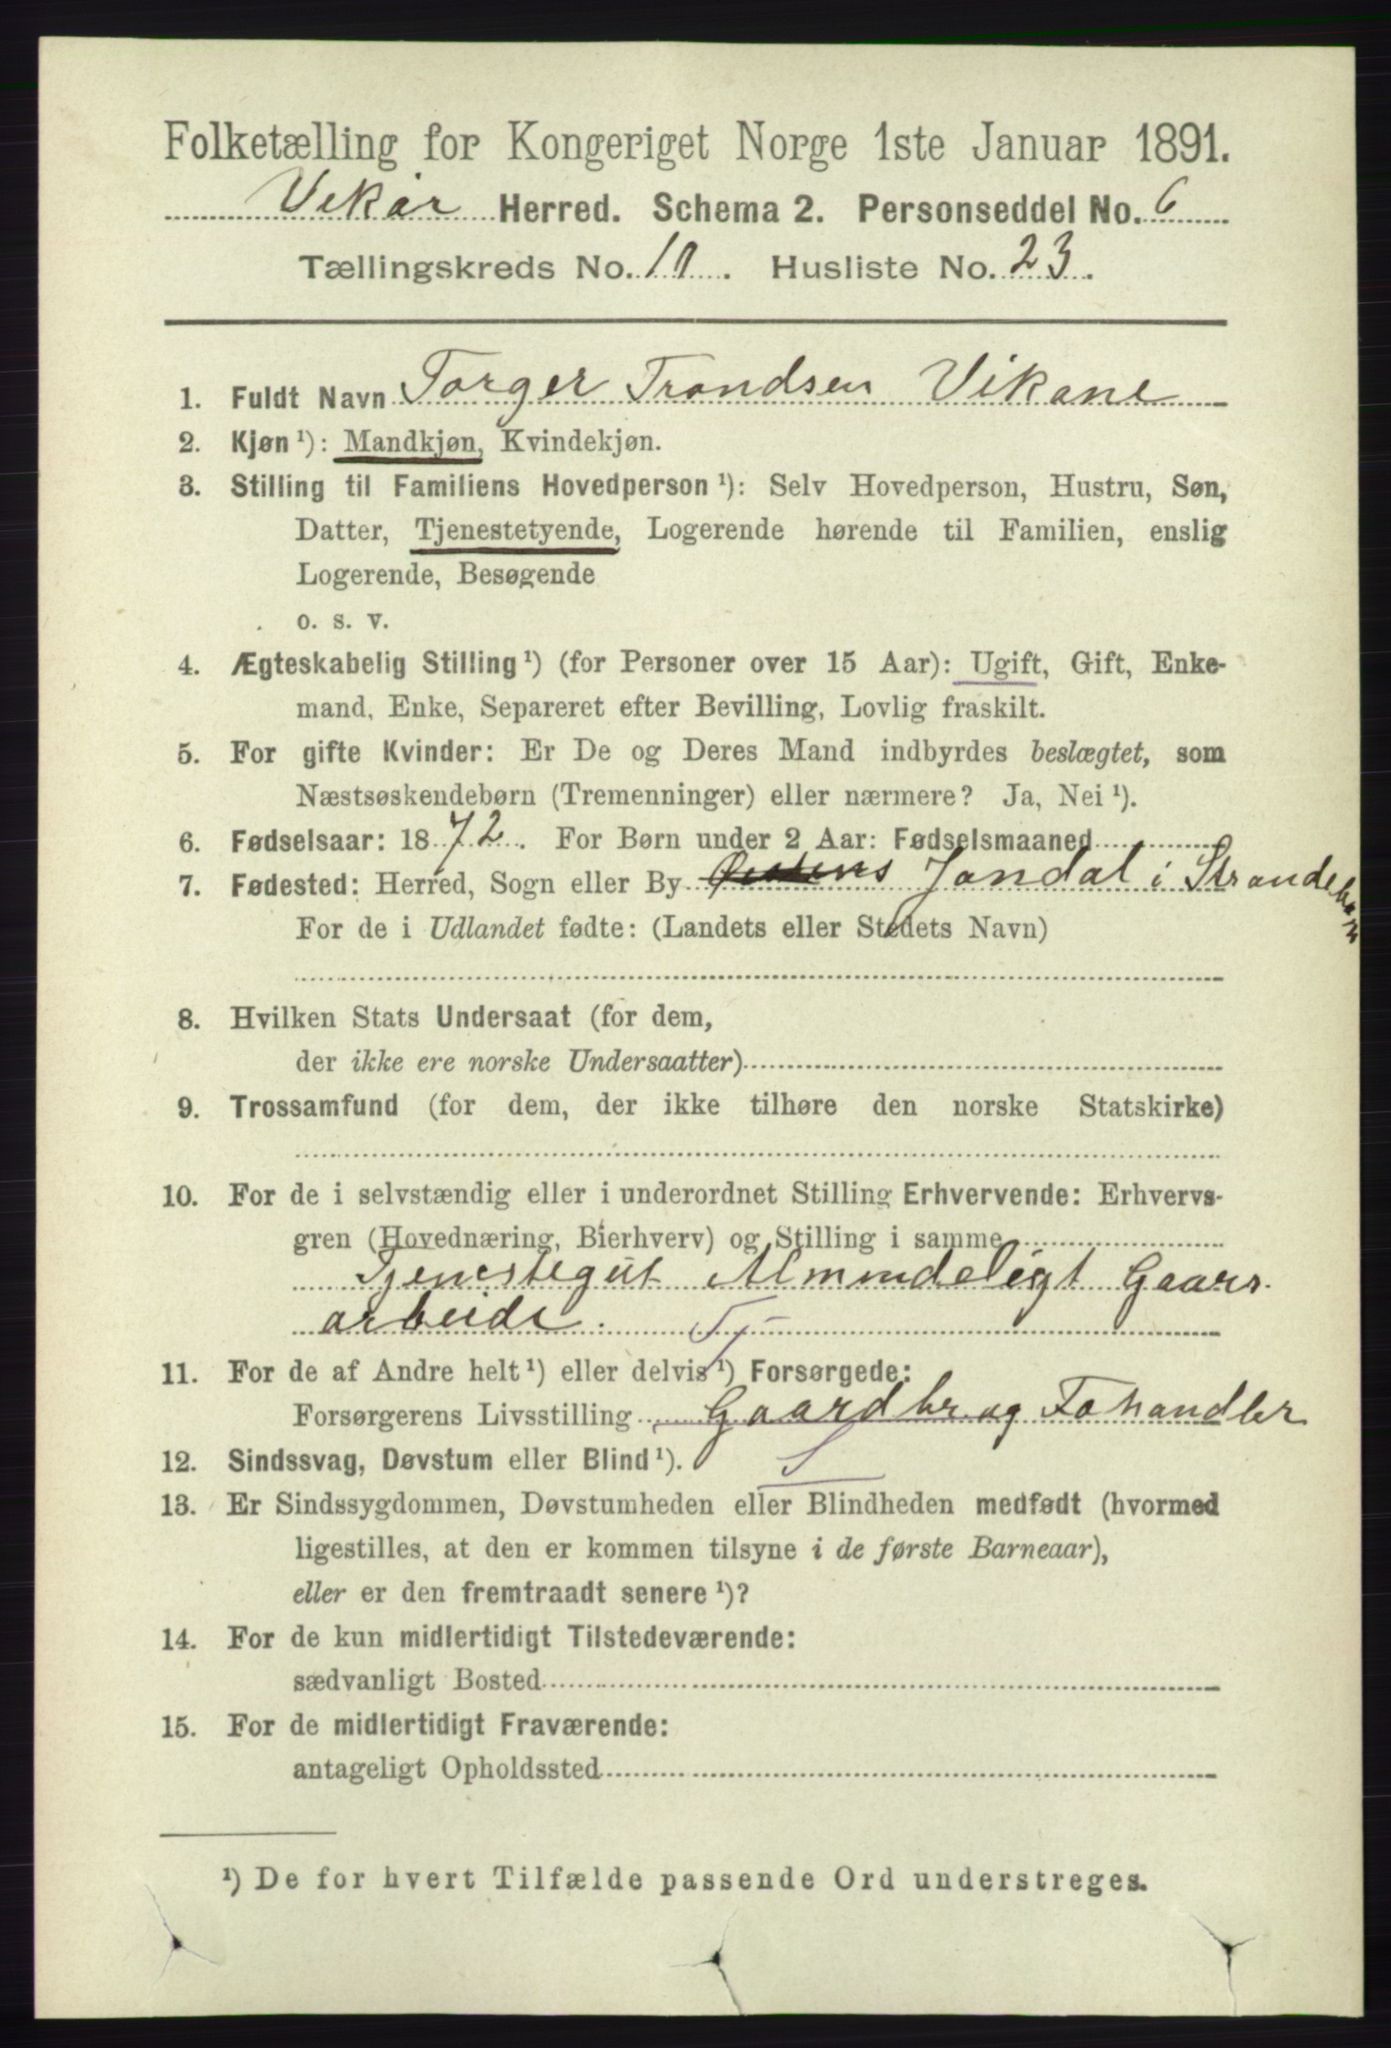 Folketælling for Kongeriget Norge 1ste Januar 1891.
Vikør Herred. Schema 2. Personseddel No. 6
Tællingskreds No. 10. Husliste No. 23.
1. Fuldt Navn Torger Trondsen Vikane
2. Kjøn ¹): Mandkjøn, Kvindekjøn.
3. Stilling til Familiens Hovedperson ¹): Selv Hovedperson, Hustru, Søn,
Datter, Tjenestetyende, Logerende hørende til Familien, enslig
Logerende, Besøgende
o. s. v.
4. Ægteskabelig Stilling ¹) (for Personer over 15 Aar): Ugift, Gift, Enke-
mand, Enke, Separeret efter Bevilling, Lovlig fraskilt.
5. For gifte Kvinder: Er De og Deres Mand indbyrdes beslægtet, som
Næstsøskendebørn (Tremenninger) eller nærmere? Ja, Nei ¹).
6. Fødselsaar: 1872. For Børn under 2 Aar: Fødselsmaaned
7. Fødested: Herred, Sogn eller By Jondal i Strandebarm
For de i Udlandet fødte: (Landets eller Stedets Navn)
8. Hvilken Stats Undersaat (for dem,
der ikke ere norske Undersaatter)
9. Trossamfund (for dem, der ikke tilhøre den norske Statskirke)
10. For de i selvstændig eller i underordnet Stilling Erhvervende: Erhvervs-
gren (Hovednæring, Bierhverv) og Stilling i samme
Tjenestegut Almindeligt Gaars
arbeide. Tj
11. For de af Andre helt ¹) eller delvis ¹) Forsørgede:
Forsørgerens Livsstilling Gaardbr. og Fæhandler
12. Sindssvag, Døvstum eller Blind ¹). S
13. Er Sindssygdommen, Døvstumheden eller Blindheden medfødt (hvormed
ligestilles, at den er kommen tilsyne i de første Barneaar),
eller er den fremtraadt senere ¹)?
14. For de kun midlertidigt Tilstedeværende:
sædvanligt Bosted
15. For de midlertidigt Fraværende:
antageligt Opholdssted
¹) De for hvert Tilfælde passende Ord understreges.